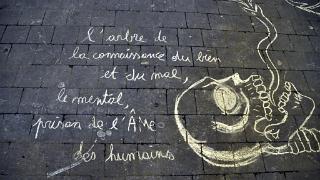 l'arbre de
la connaissance du bien
et du mal,
le mental,
prison de l'Âme
des humains